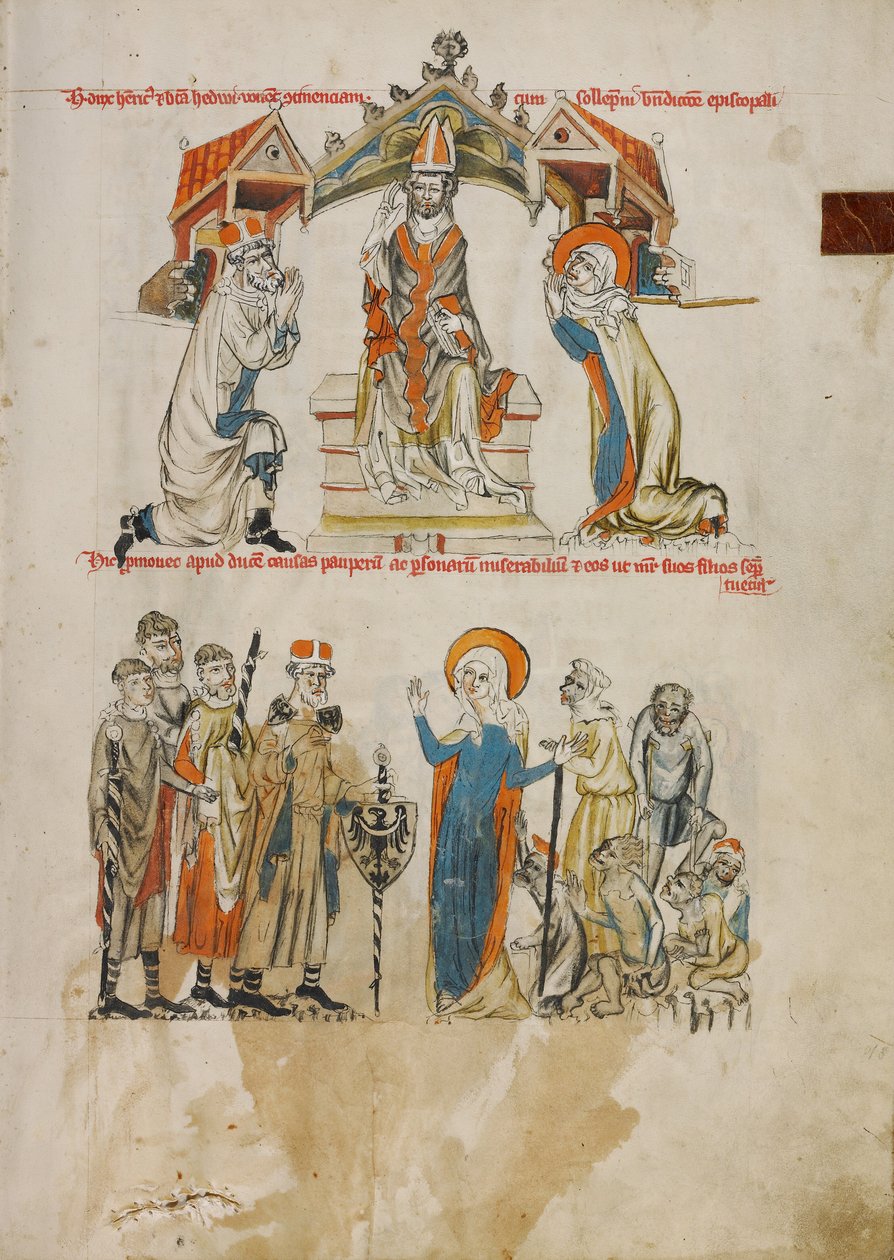 H. dux henric⁹ ⁊ bt̄a hedwi. vovēt ꝯtinenciam. cum sollēpni bn̄dictōe episcopali
Hic ꝓmovet apud ducē causas pauperū ac ꝑsonarū miserabiliū ⁊ eos ut mr̄ suos filios semꝑ
tuetur